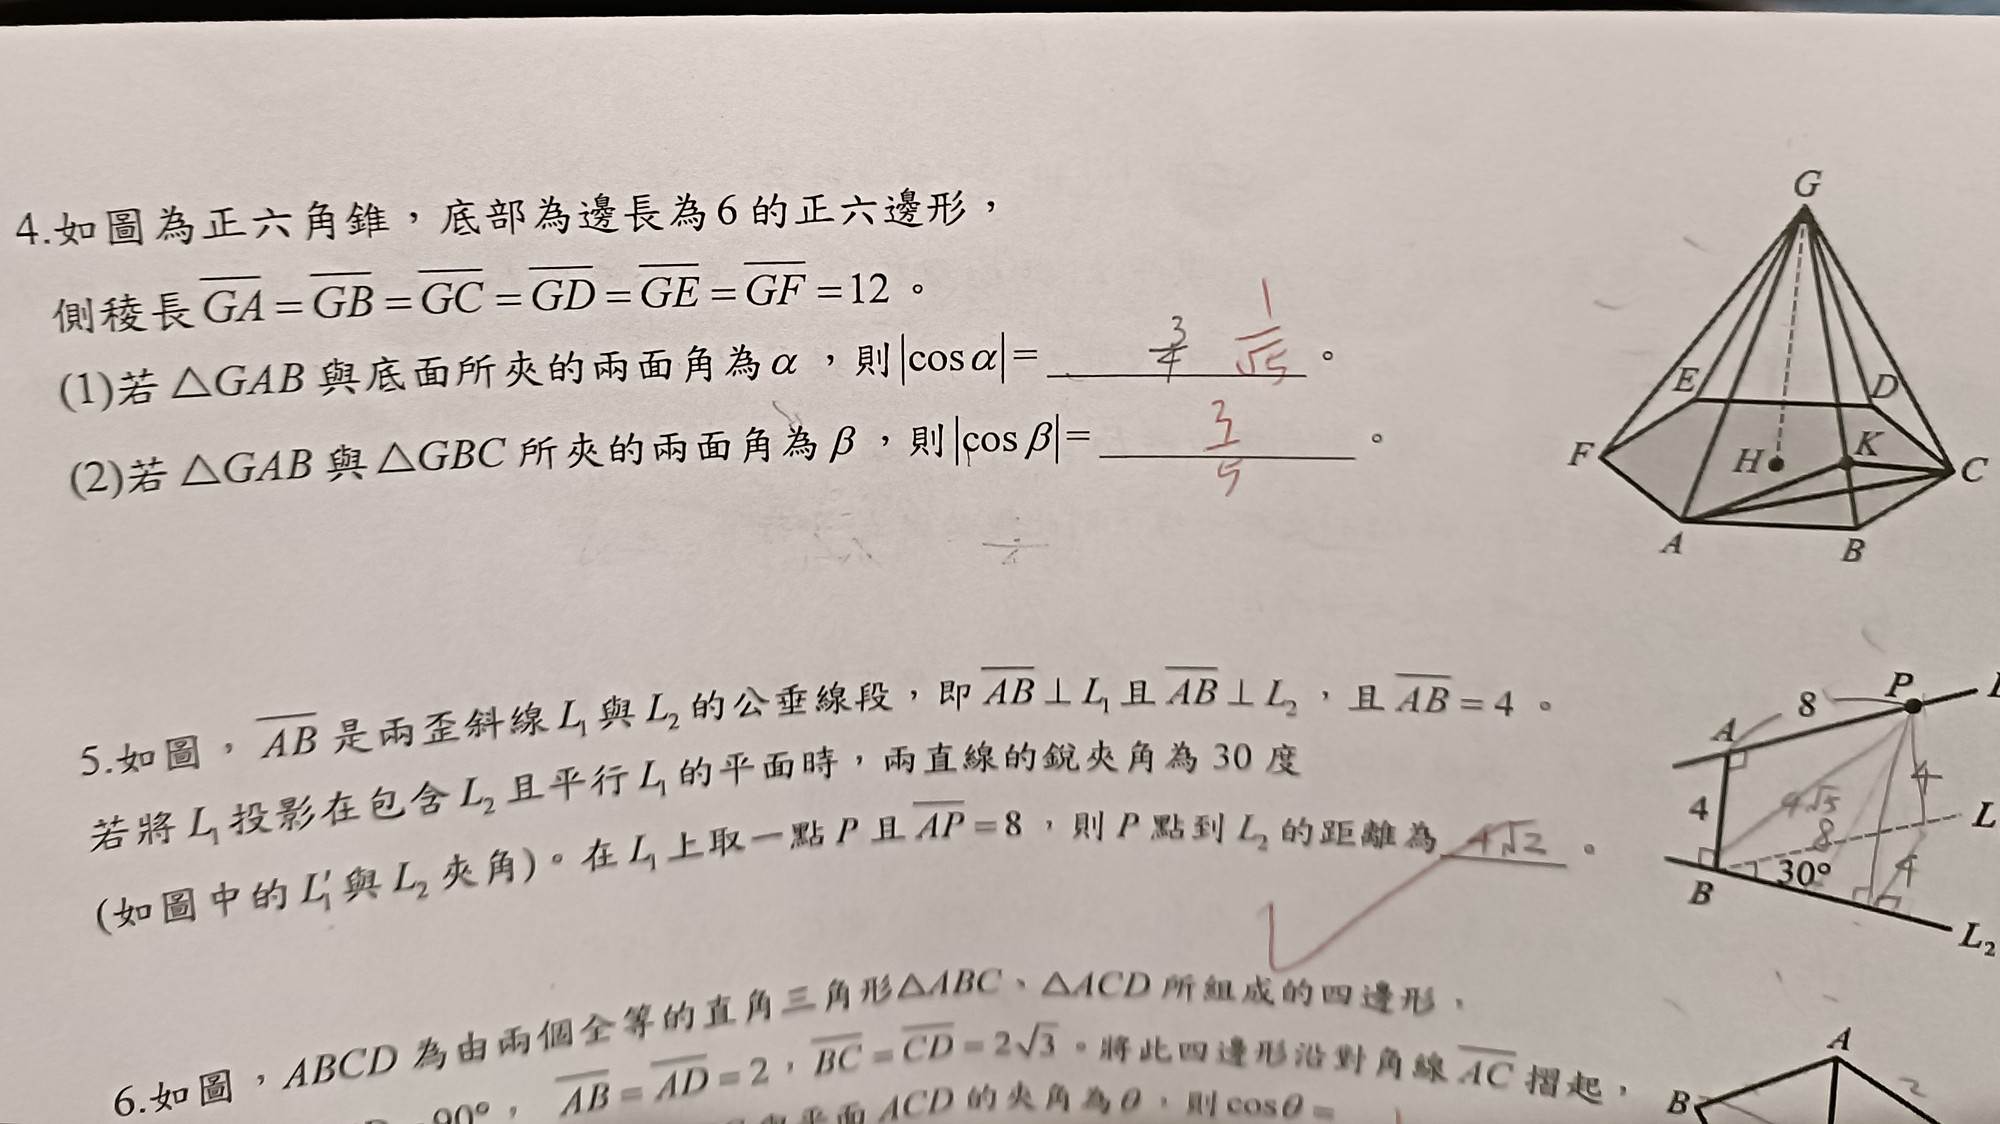 4.如圖為正六角錐，底部為邊長為6的正六邊形，
側稜長GA=GB=GC=GD=GE=GF=12。
(1)若△GAB與底面所夾的兩面角為α，則|cosα|= 3/4 1/√5 。
(2)若△GAB與△GBC所夾的兩面角為β，則|cosβ|= 3/5 。
G
E
D
F
H
K
C
A
B
5.如圖，AB是兩歪斜線L₁與L₂的公垂線段，即AB⊥L₁且AB⊥L₂，且AB=4。
若將L₁投影在包含L₂且平行L₁的平面時，兩直線的銳夾角為30度
(如圖中的L₁′與L₂夾角)。在L₁上取一點P且AP=8，則P點到L₂的距離為 4√2 。
8
P
A
4
4
4√5
8
L
30°
4
B
L₂
6.如圖，ABCD為由兩個全等的直角三角形△ABC、△ACD所組成的四邊形，
90°，AB=AD=2，BC=CD=2√3。將此四邊形沿對角線AC摺起，
與平面ACD的夾角為θ，則cosθ=
A
2
B